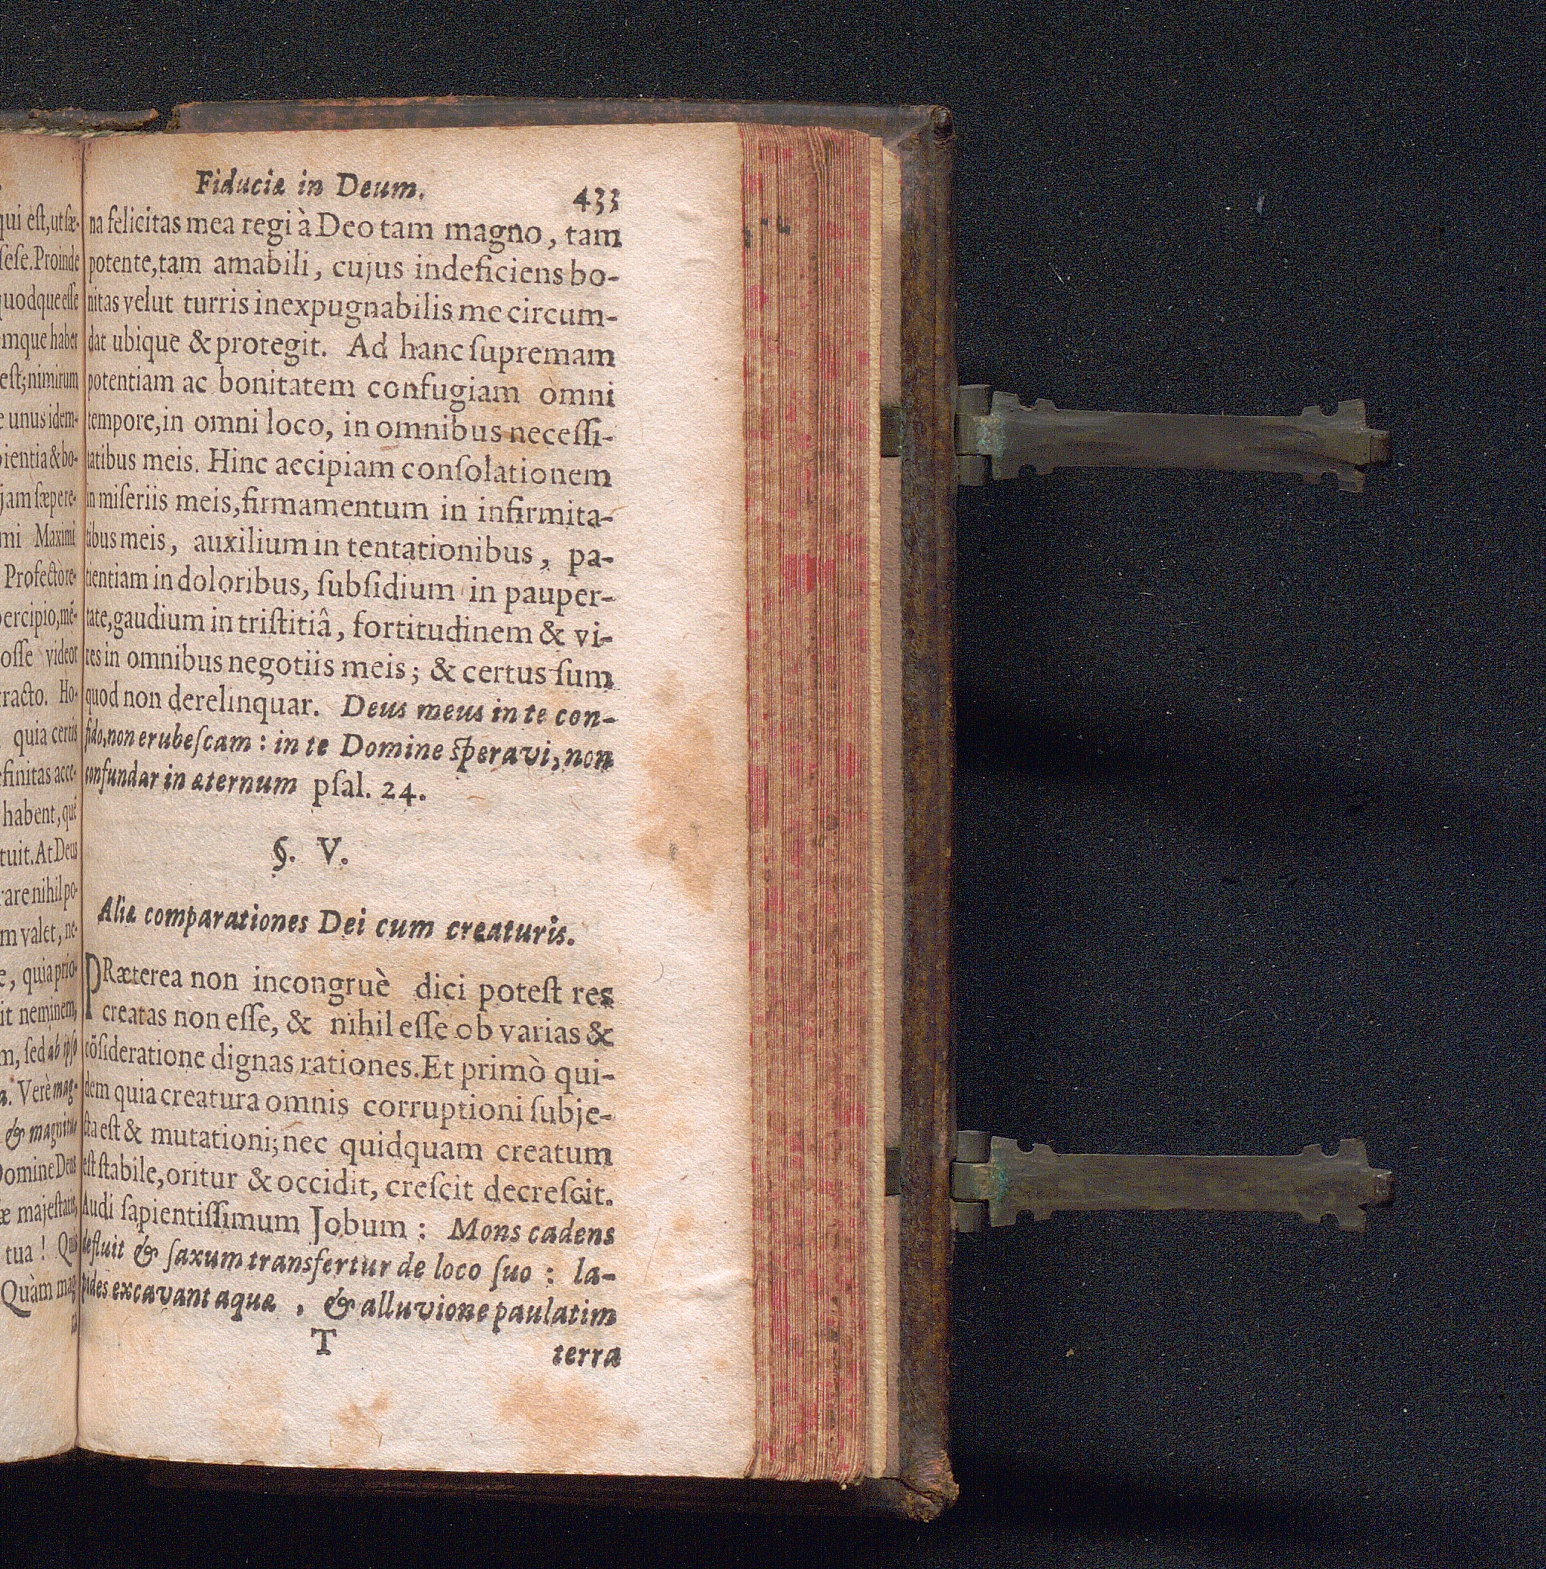 qui eſt, ut ſæ-
ſeſe. Proinde
quodque eſſe
mque habet
eſt; nimirum
e unus idem-
pientia & bo-
jam ſæpe re-
mi Maximi
Profectò re-
percipio, mē-
oſſe videor
racto. Ho-
quia certis
finitas acce-
habent, qui
tuit. At Deus
rare nihil po-
m valet, ne-
e, quia prio-
it neminem,
m, ſed ab ipſo
a. Verè mag-
& magnitu-
Domine Deus
æ majeſtatis,
tua ! Quis
Quàm mag-
Fiduciæ in Deum. 433
na felicitas mea regi à Deo tam magno, tam
potente, tam amabili, cujus indeficiens bo-
nitas velut turris inexpugnabilis me circum-
dat ubique & protegit. Ad hanc ſupremam
potentiam ac bonitatem confugiam omni
tempore, in omni loco, in omnibus neceſſi-
tatibus meis. Hinc accipiam conſolationem
in miſeriis meis, firmamentum in infirmita-
tibus meis, auxilium in tentationibus, pa-
tientiam in doloribus, ſubſidium in pauper-
tate, gaudium in triſtitiâ, fortitudinem & vi-
res in omnibus negotiis meis; & certus ſum
quod non derelinquar. Deus meus in te con-
fido, non erubeſcam : in te Domine ſperavi, non
confundar in æternum pſal. 24.
§. V.
Aliæ comparationes Dei cum creaturis.
PRæterea non incongruè dici poteſt res
creatas non eſſe, & nihil eſſe ob varias &
cōſideratione dignas rationes. Et primò qui-
dem quia creatura omnis corruptioni ſubje-
cta eſt & mutationi; nec quidquam creatum
eſt ſtabile, oritur & occidit, creſcit decreſcit.
Audi ſapientiſſimum Jobum : Mons cadens
defluit & ſaxum transfertur de loco ſuo : la-
pides excavant aquæ , & alluvione paulatim
T terra